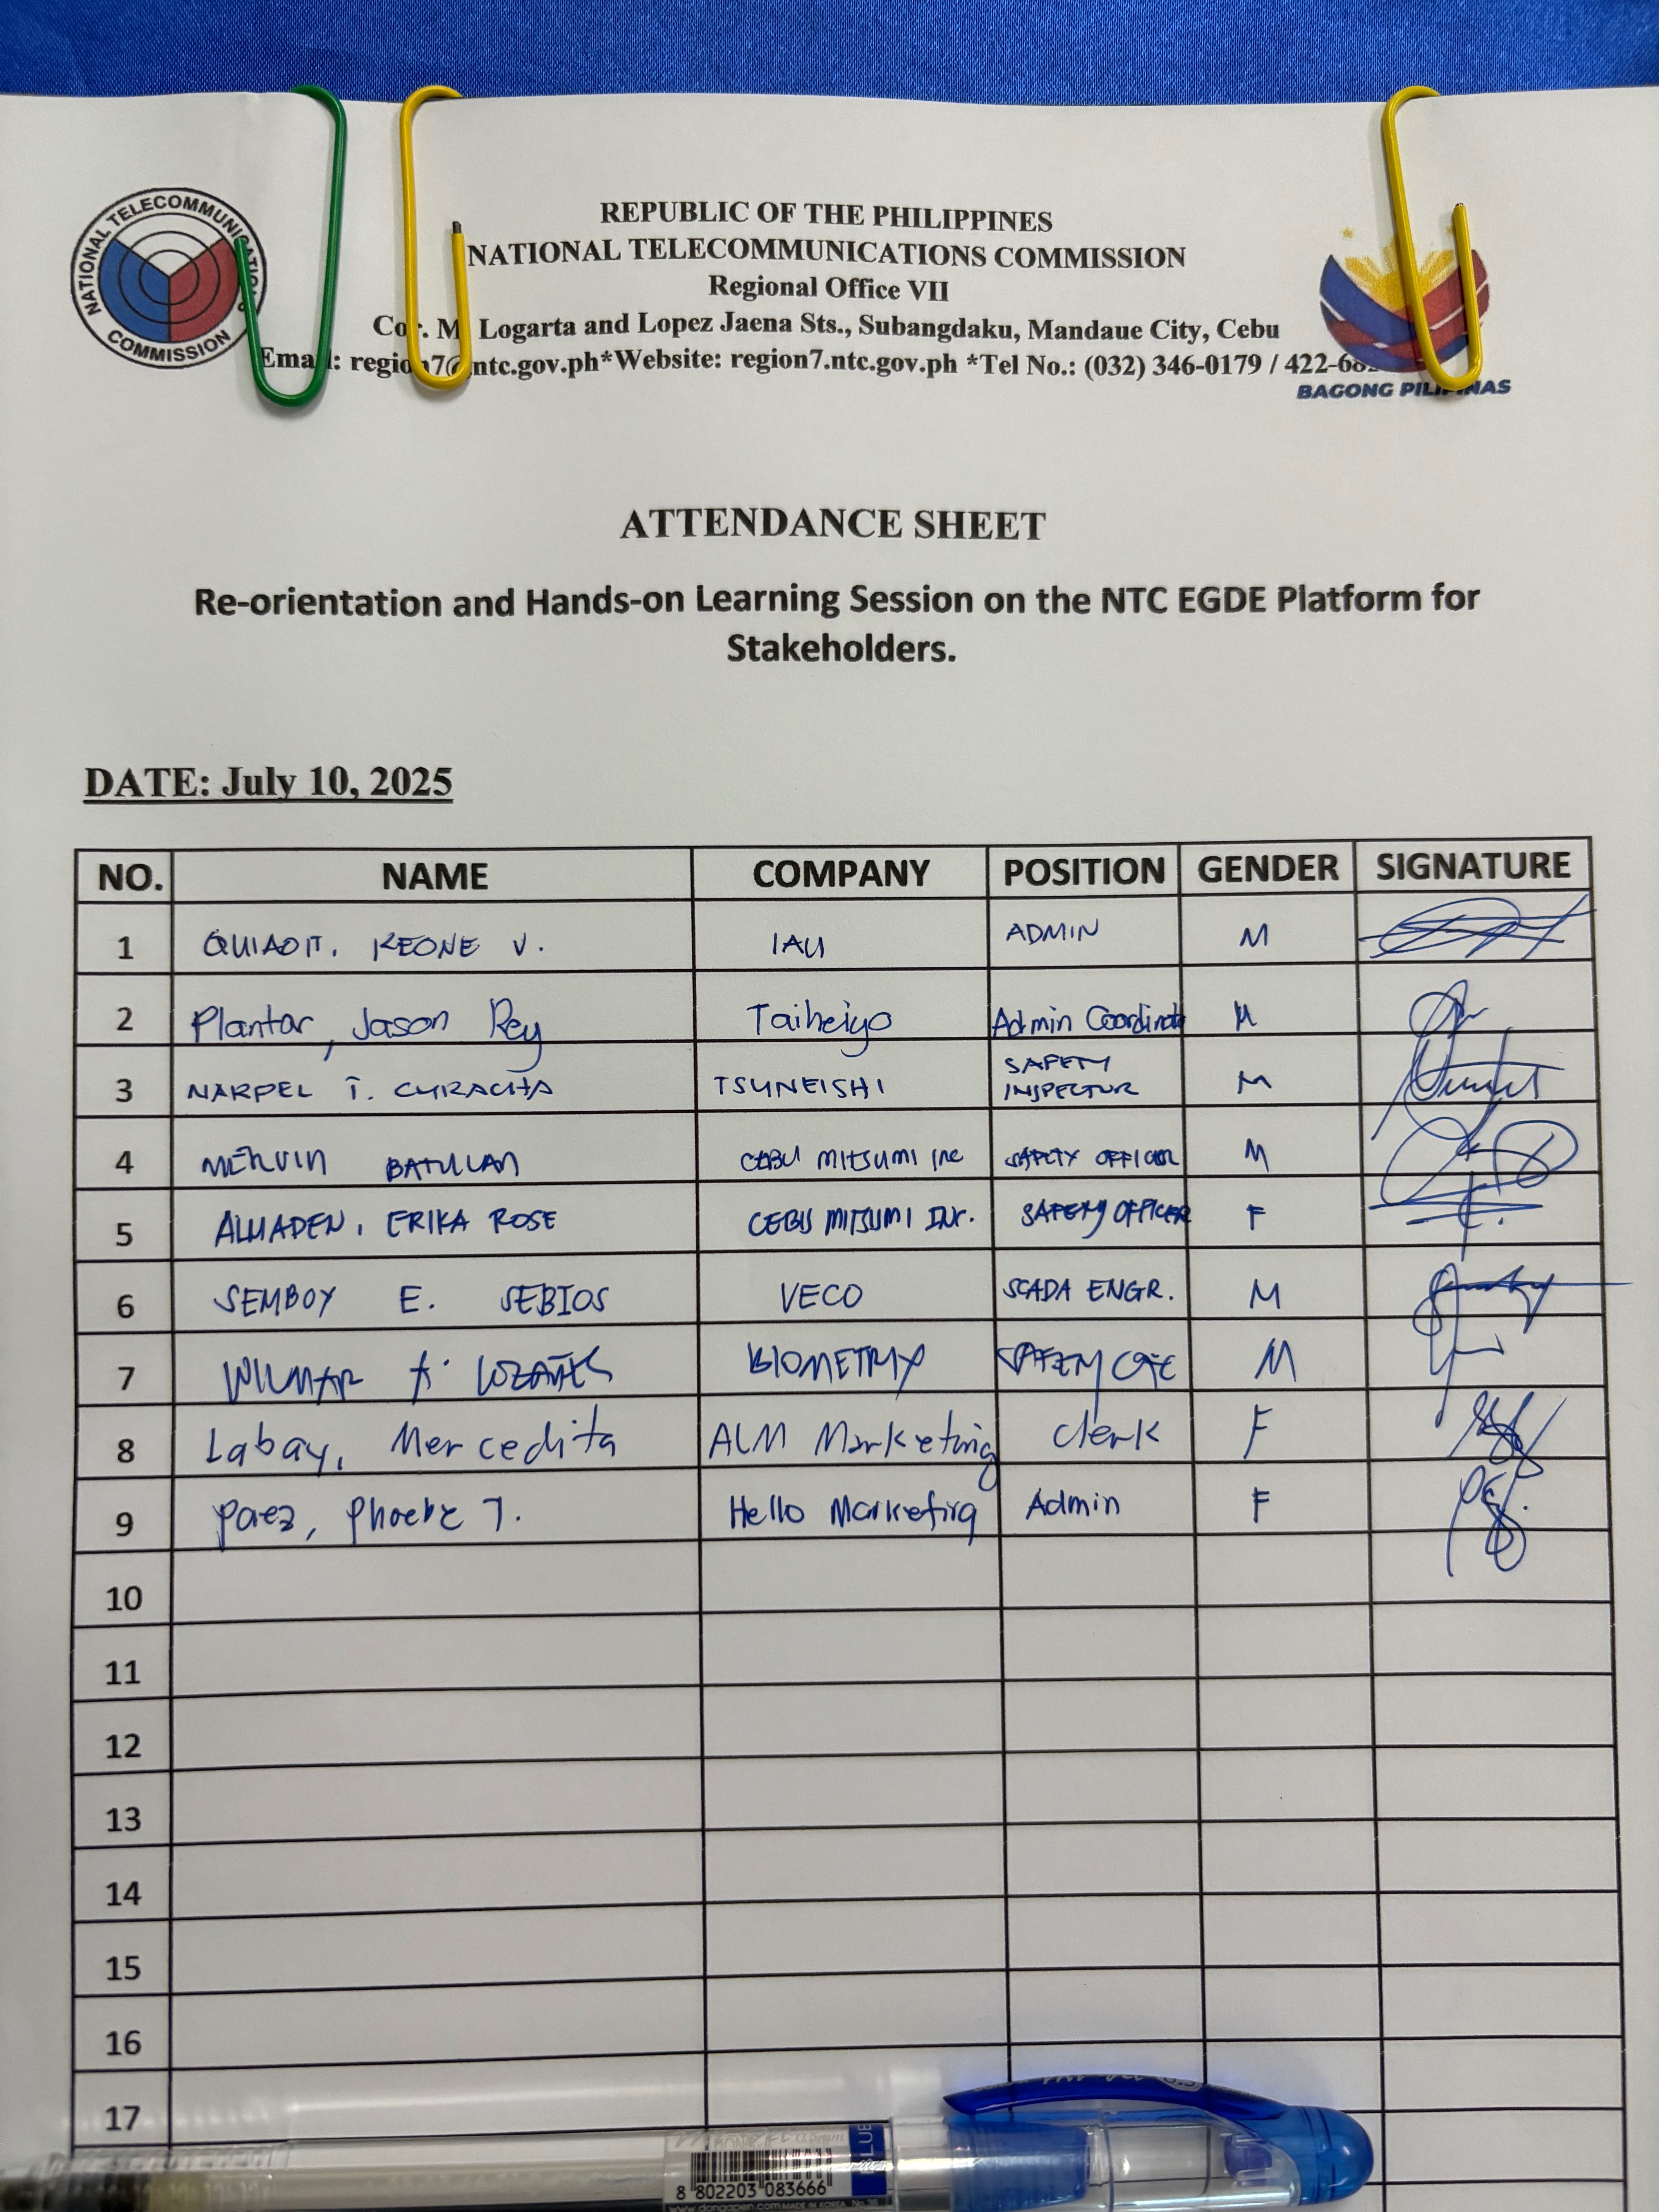 NATIONAL TELECOMMUNICATIONS COMMISSION
REPUBLIC OF THE PHILIPPINES
NATIONAL TELECOMMUNICATIONS COMMISSION
Regional Office VII
Cor. M. Logarta and Lopez Jaena Sts., Subangdaku, Mandaue City, Cebu
Email: region7@ntc.gov.ph*Website: region7.ntc.gov.ph *Tel No.: (032) 346-0179 /
BAGONG PILIPINAS
ATTENDANCE SHEET
Re-orientation and Hands-on Learning Session on the NTC EGDE Platform for
Stakeholders.
DATE: July 10, 2025
NO. NAME COMPANY POSITION GENDER SIGNATURE
1 QUIAOIT, KEONE V. IAU ADMIN M
2 Plantar, Jason Rey Taiheiyo Admin Coordinator M
3 NARPEL T. CURACHA TSUNEISHI SAFETY INSPECTOR M
4 MERVIN BATULAN CEBU MITSUMI INC SAFETY OFFICER M
5 ALMADEN, ERIKA ROSE CEBU MITSUMI INC. SAFETY OFFICER F
6 SEMBOY E. SEBIOS VECO SCADA ENGR. M
7 WILMAR A. BIOMETRIX M
8 Labay, Mercedita ALM Marketing Clerk F
9 Paez, Phoebe T. Hello Marketing Admin F
10
11
12
13
14
15
16
17
BLUE
8 802203 083666
www.dongapen.com MADE IN KOREA